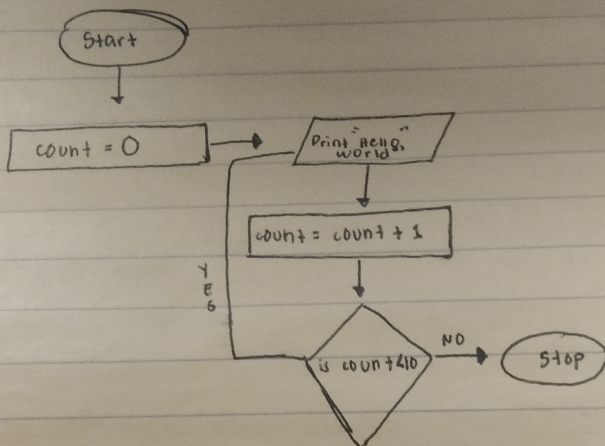 Start
count = 0
Print "Hello,"
world
count = count + 1
YES
is count<10
NO
Stop